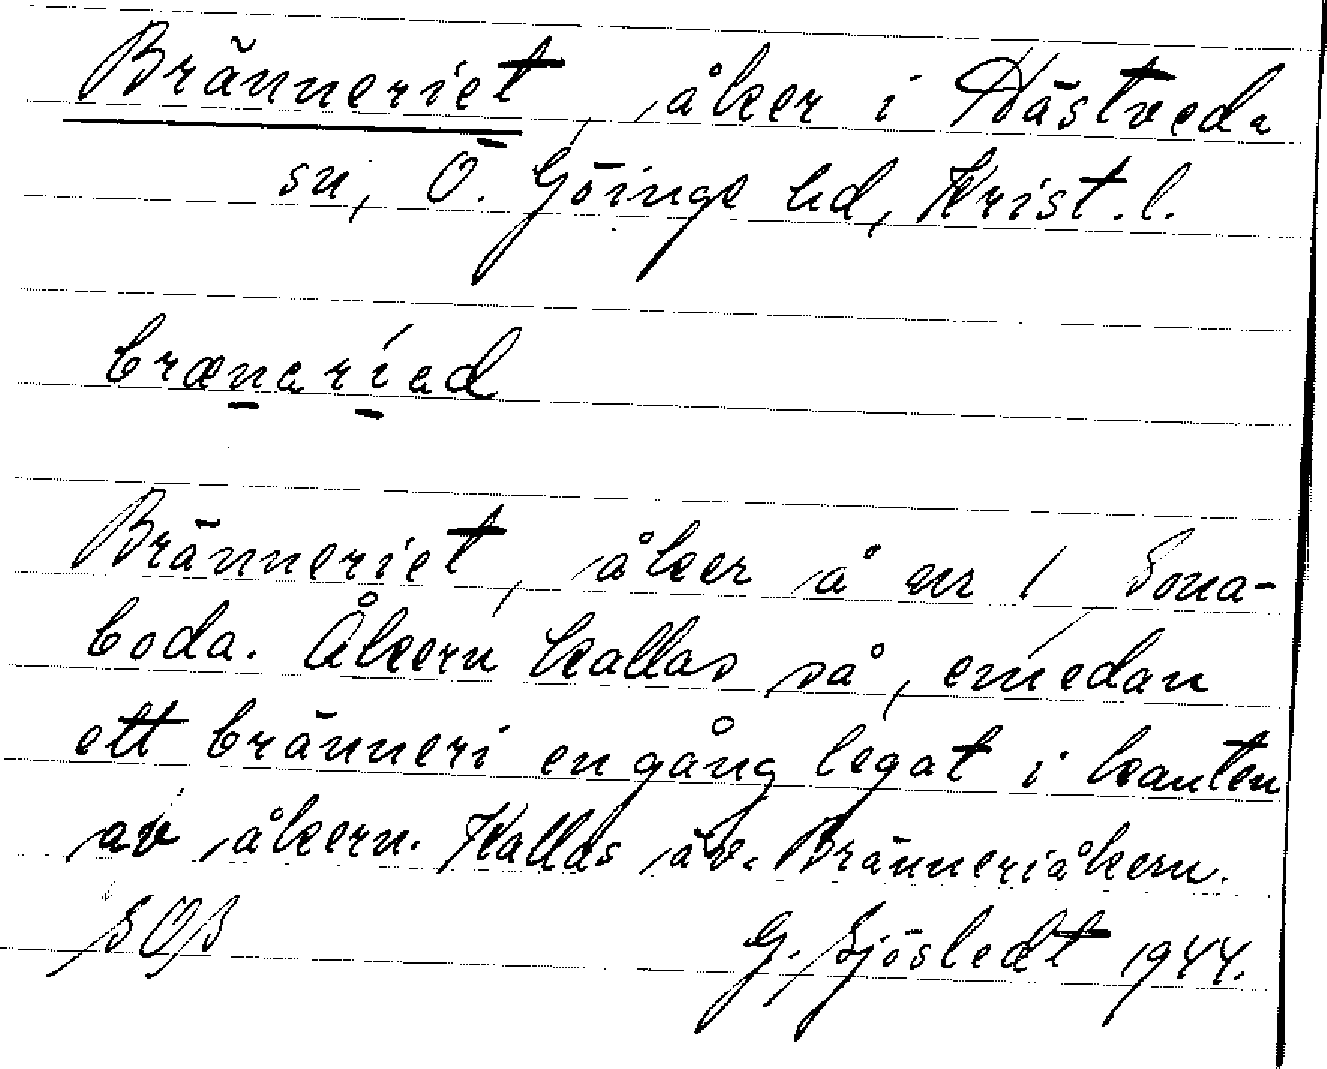 Bränneriet, åker i Hästveda
sn, Ö. Göinge hd, Krist. l.
brænəríəd
Bränneriet, åker å nr 1 Sona-
boda. Åkern kallas så, emedan
ett bränneri en gång legat i kanten
av åkern. Kallas äv. Bränneriåkern.
G. Sjöstedt 1944.